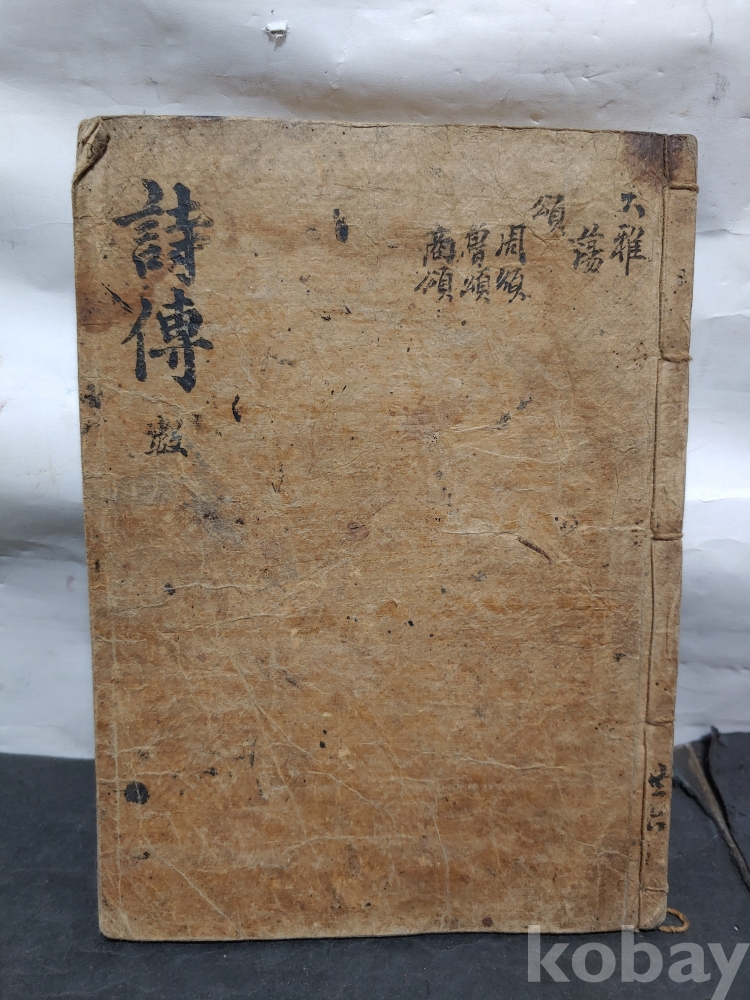 大雅
蕩
頌
周頌
魯頌
商頌
詩傳
共六
kobay